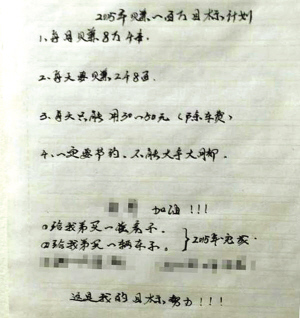 2015年赚一百万目标计划
1、每月赚8万4千.
2、每天要赚248
3、每天只能用30~50元(车费)
4、一定要节约、不能大手大脚.
加油!!!
①给我弟买一套房子.
②给我弟买一辆车子.
2015年完成.
这是我的目标努力!!!